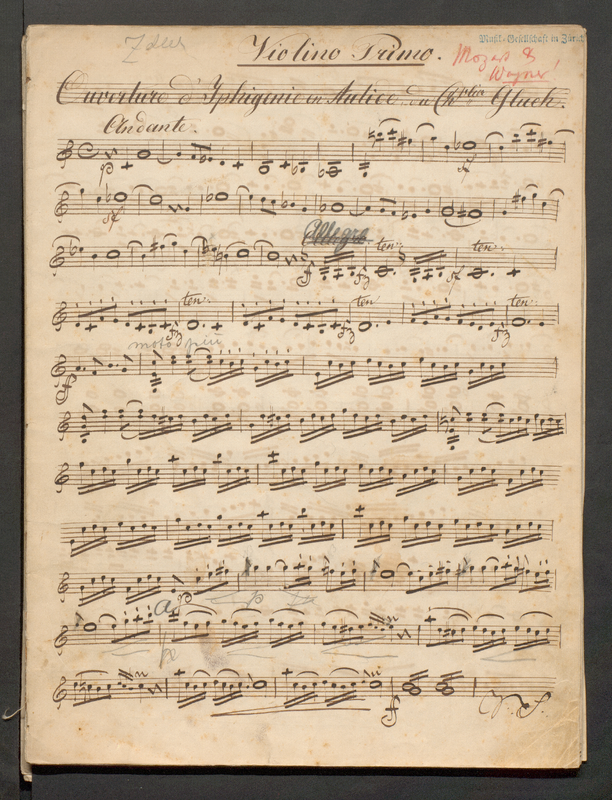 Violino Primo.
Musik-Gesellschaft in Zürich
Mozart &
Wagner!
Ouverture d'Iphigenie en Aulide von Ch. Gluck.
Andante.
p
Allegro.
ten: ten:
ten: ten ten:
moto più
a
p
V. S.